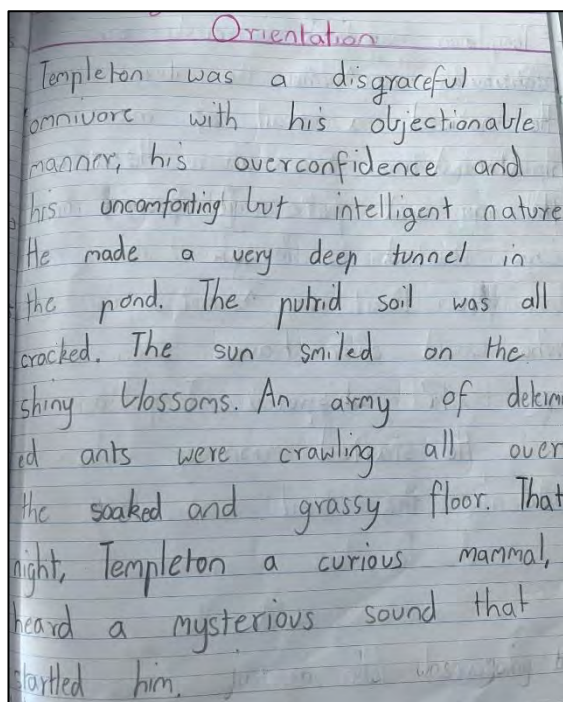 Orientation
Templeton was a disgraceful
omnivore with his objectionable
manner, his overconfidence and
his uncomforting but intelligent nature
He made a very deep tunnel in
the pond. The putrid soil was all
cracked. The sun smiled on the
shiny blossoms. An army of determ
ed ants were crawling all over
the soaked and grassy floor. That
night, Templeton a curious mammal,
heard a mysterious sound that
startled him.